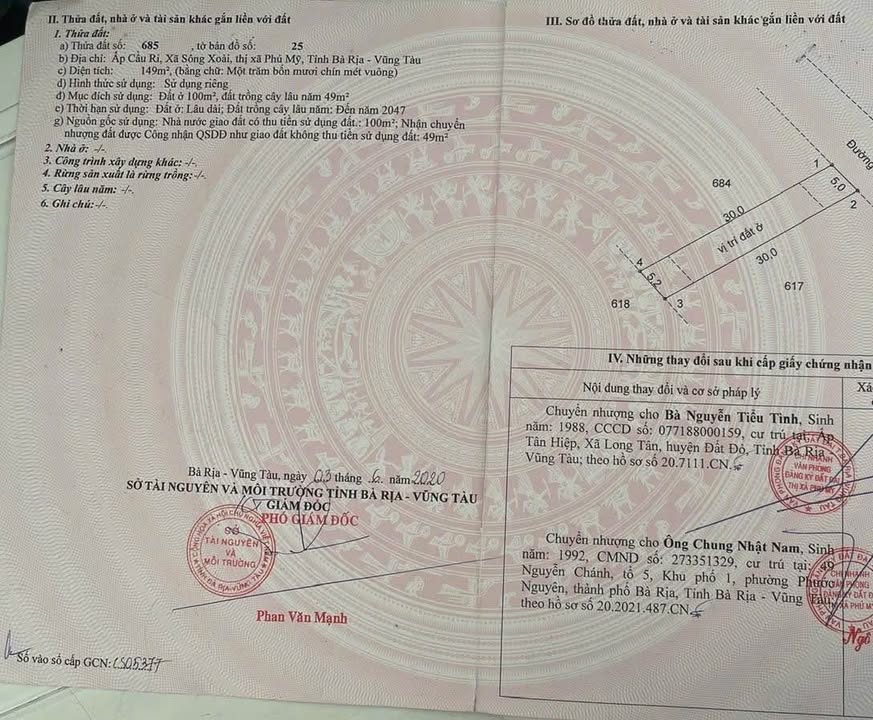 II. Thửa đất, nhà ở và tài sản khác gắn liền với đất
1. Thửa đất:
a) Thửa đất số: 685 , tờ bản đồ số: 25
b) Địa chỉ: Ấp Cầu Ri, Xã Sông Xoài, thị xã Phú Mỹ, Tỉnh Bà Rịa - Vũng Tàu
c) Diện tích: 149m², (bằng chữ: Một trăm bốn mươi chín mét vuông)
d) Hình thức sử dụng: Sử dụng riêng
đ) Mục đích sử dụng: Đất ở 100m², đất trồng cây lâu năm 49m²
e) Thời hạn sử dụng: Đất ở: Lâu dài; Đất trồng cây lâu năm: Đến năm 2047
g) Nguồn gốc sử dụng: Nhà nước giao đất có thu tiền sử dụng đất.: 100m²; Nhận chuyển
nhượng đất được Công nhận QSDĐ như giao đất không thu tiền sử dụng đất: 49m²
2. Nhà ở: -/-.
3. Công trình xây dựng khác: -/-.
4. Rừng sản xuất là rừng trồng:-/-.
5. Cây lâu năm: -/-.
6. Ghi chú:-/-.
Bà Rịa - Vũng Tàu, ngày 03 tháng 6 năm 2020
SỞ TÀI NGUYÊN VÀ MÔI TRƯỜNG TỈNH BÀ RỊA - VŨNG TÀU
GIÁM ĐỐC
PHÓ GIÁM ĐỐC
SỞ
TÀI NGUYÊN
VÀ
MÔI TRƯỜNG
Phan Văn Mạnh
Số vào sổ cấp GCN: CS05377
III. Sơ đồ thửa đất, nhà ở và tài sản khác gắn liền với đất
Đường
1
5,0
2
684
30,0
vị trí đất ở
30,0
4
5,2
3
617
618
IV. Những thay đổi sau khi cấp giấy chứng nhận
Nội dung thay đổi và cơ sở pháp lý
Xá
Chuyển nhượng cho Bà Nguyễn Tiểu Tình, Sinh
năm: 1988, CCCD số: 077188000159, cư trú tại: Ấp
Tân Hiệp, Xã Long Tân, huyện Đất Đỏ, Tỉnh Bà Rịa
Vũng Tàu; theo hồ sơ số 20.7111.CN.
CHI NHÁNH
VĂN PHÒNG
ĐĂNG KÝ ĐẤT ĐAI
THỊ XÃ PHÚ MỸ
Chuyển nhượng cho Ông Chung Nhật Nam, Sinh
năm: 1992, CMND số: 273351329, cư trú tại: 49
Nguyễn Chánh, tổ 5, Khu phố 1, phường Phước
Nguyên, thành phố Bà Rịa, Tỉnh Bà Rịa - Vũng Tàu;
theo hồ sơ số 20.2021.487.CN
CHI NHÁNH
Ngô